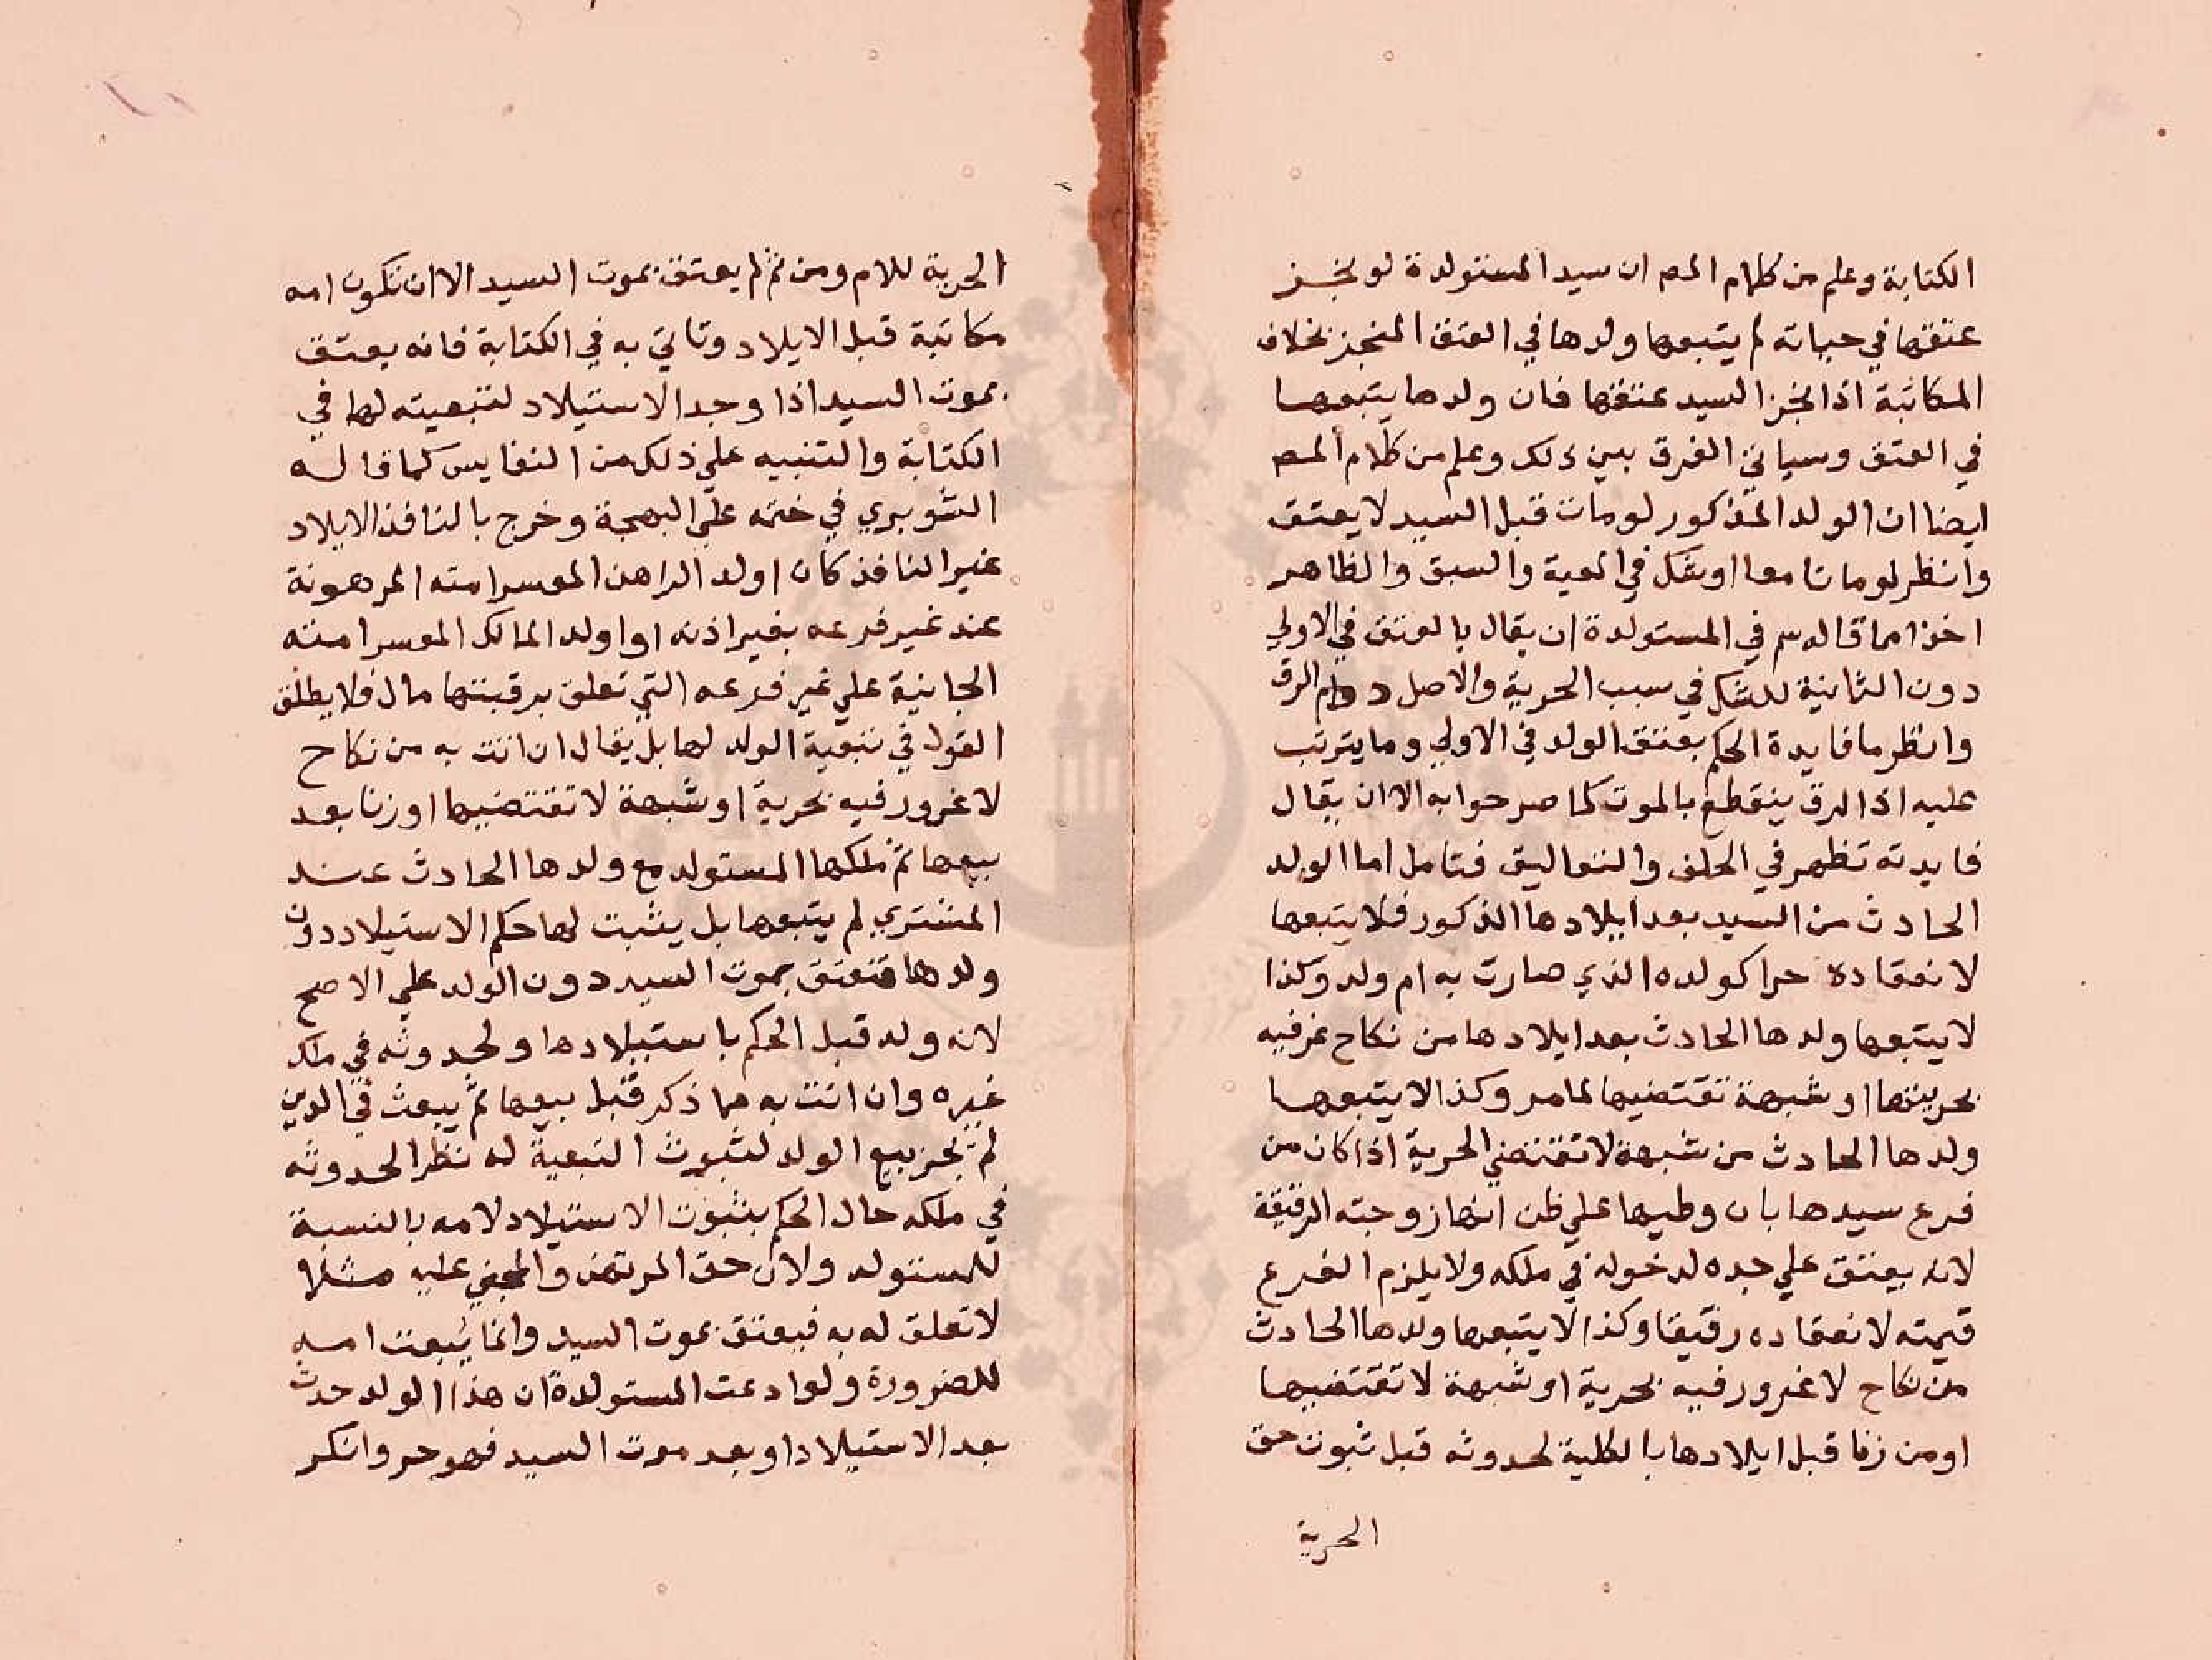 الكتابة وعلم من كلام المص ان سيد المستولدة لو نجز
عتقها في حياته لم يتبعها ولدها في العتق المنجز بخلاف
المكاتبة اذا نجز السيد عتقها فان ولدها يتبعها
في العتق وسياتي الفرق بين ذلك وعلم من كلام المص
ايضا ان الولد المذكور لو مات قبل السيد لا يعتق
وانظر لو ماتا معا او شك في المعية والسبق والظاهر
اخذا مما قاله سم في المستولدة ان يقال بالعتق في الاولي
دون الثانية للشك في سبب الحرية والاصل دوام الرق
وانظر ما فايدة الحكم بعتق الولد في الاولي وما يترتب
عليه اذ الرق ينقطع بالموت كما صرحوا به الا ان يقال
فايدته تظهر في الحلف والتعاليق فتامل اما الولد
الحادث من السيد بعد ايلادها المذكور فلا يتبعها
لانعقاده حرا كولده الذي صارت به ام ولد وكذا
لا يتبعها ولدها الحادث بعد ايلادها من نكاح غر فيه
بحريتها او شبهة تقتضيها لما مر وكذا لا يتبعها
ولدها الحادث من شبهة لا تقتضي الحرية اذا كان من
فرع سيدها بان وطيها علي ظن انها زوجته الرقيقة
لانه يعتق علي جده لدخوله في ملكه ولا يلزم الفرع
قيمته لانعقاده رقيقا وكذا لا يتبعها ولدها الحادث
من نكاح لا غرور فيه بحرية او شبهة لا تقتضيها
او من زنا قبل ايلادها بالكلية لحدوثه قبل ثبوت حق
الحرية
الحرية للام ومن ثم لم يعتق بموت السيد الا ان تكون امه
مكاتبة قبل الايلاد وتاتي به في الكتابة فانه يعتق
بموت السيد اذا وجد الاستيلاد لتبعيته لها في
الكتابة والتنبيه علي ذلك من النفايس كما قاله
الشوبري في ختمه علي البهجة وخرج بالنافذ الايلاد
غير النافذ كان اولد الراهن المعسر امته المرهونة
عند غير فرعه بغير اذنه او اولد المالك المعسر امته
الجانية علي غير فرعه التي تعلق برقبتها مال فلا يطلق
القول في تبعية الولد لها بل يقال ان اتت به من نكاح
لا غرور فيه بحرية او شبهة لا تقتضيها او زنا بعد
بيعها ثم ملكها المستولد مع ولدها الحادث عند
المشتري لم يتبعها بل يثبت لها حكم الاستيلاد دون
ولدها فتعتق بموت السيد دون الولد علي الاصح
لانه ولد قبل الحكم باستيلادها ولحدوثه في ملك
غيره وان اتت به مما ذكر قبل بيعها ثم يبعث في الدين
لم يجز بيع الولد لثبوت التبعية له نظرا لحدوثه
في ملكه حال الحكم بثبوت الاستيلاد لامه بالنسبة
للمستولد ولان حق المرتهن والمجني عليه مثلا
لا تعلق له به فيعتق بموت السيد وانما يبعت امه
للضرورة ولو ادعت المستولدة ان هذا الولد حدث
بعد الاستيلاد او بعد موت السيد فهو حر وانكر